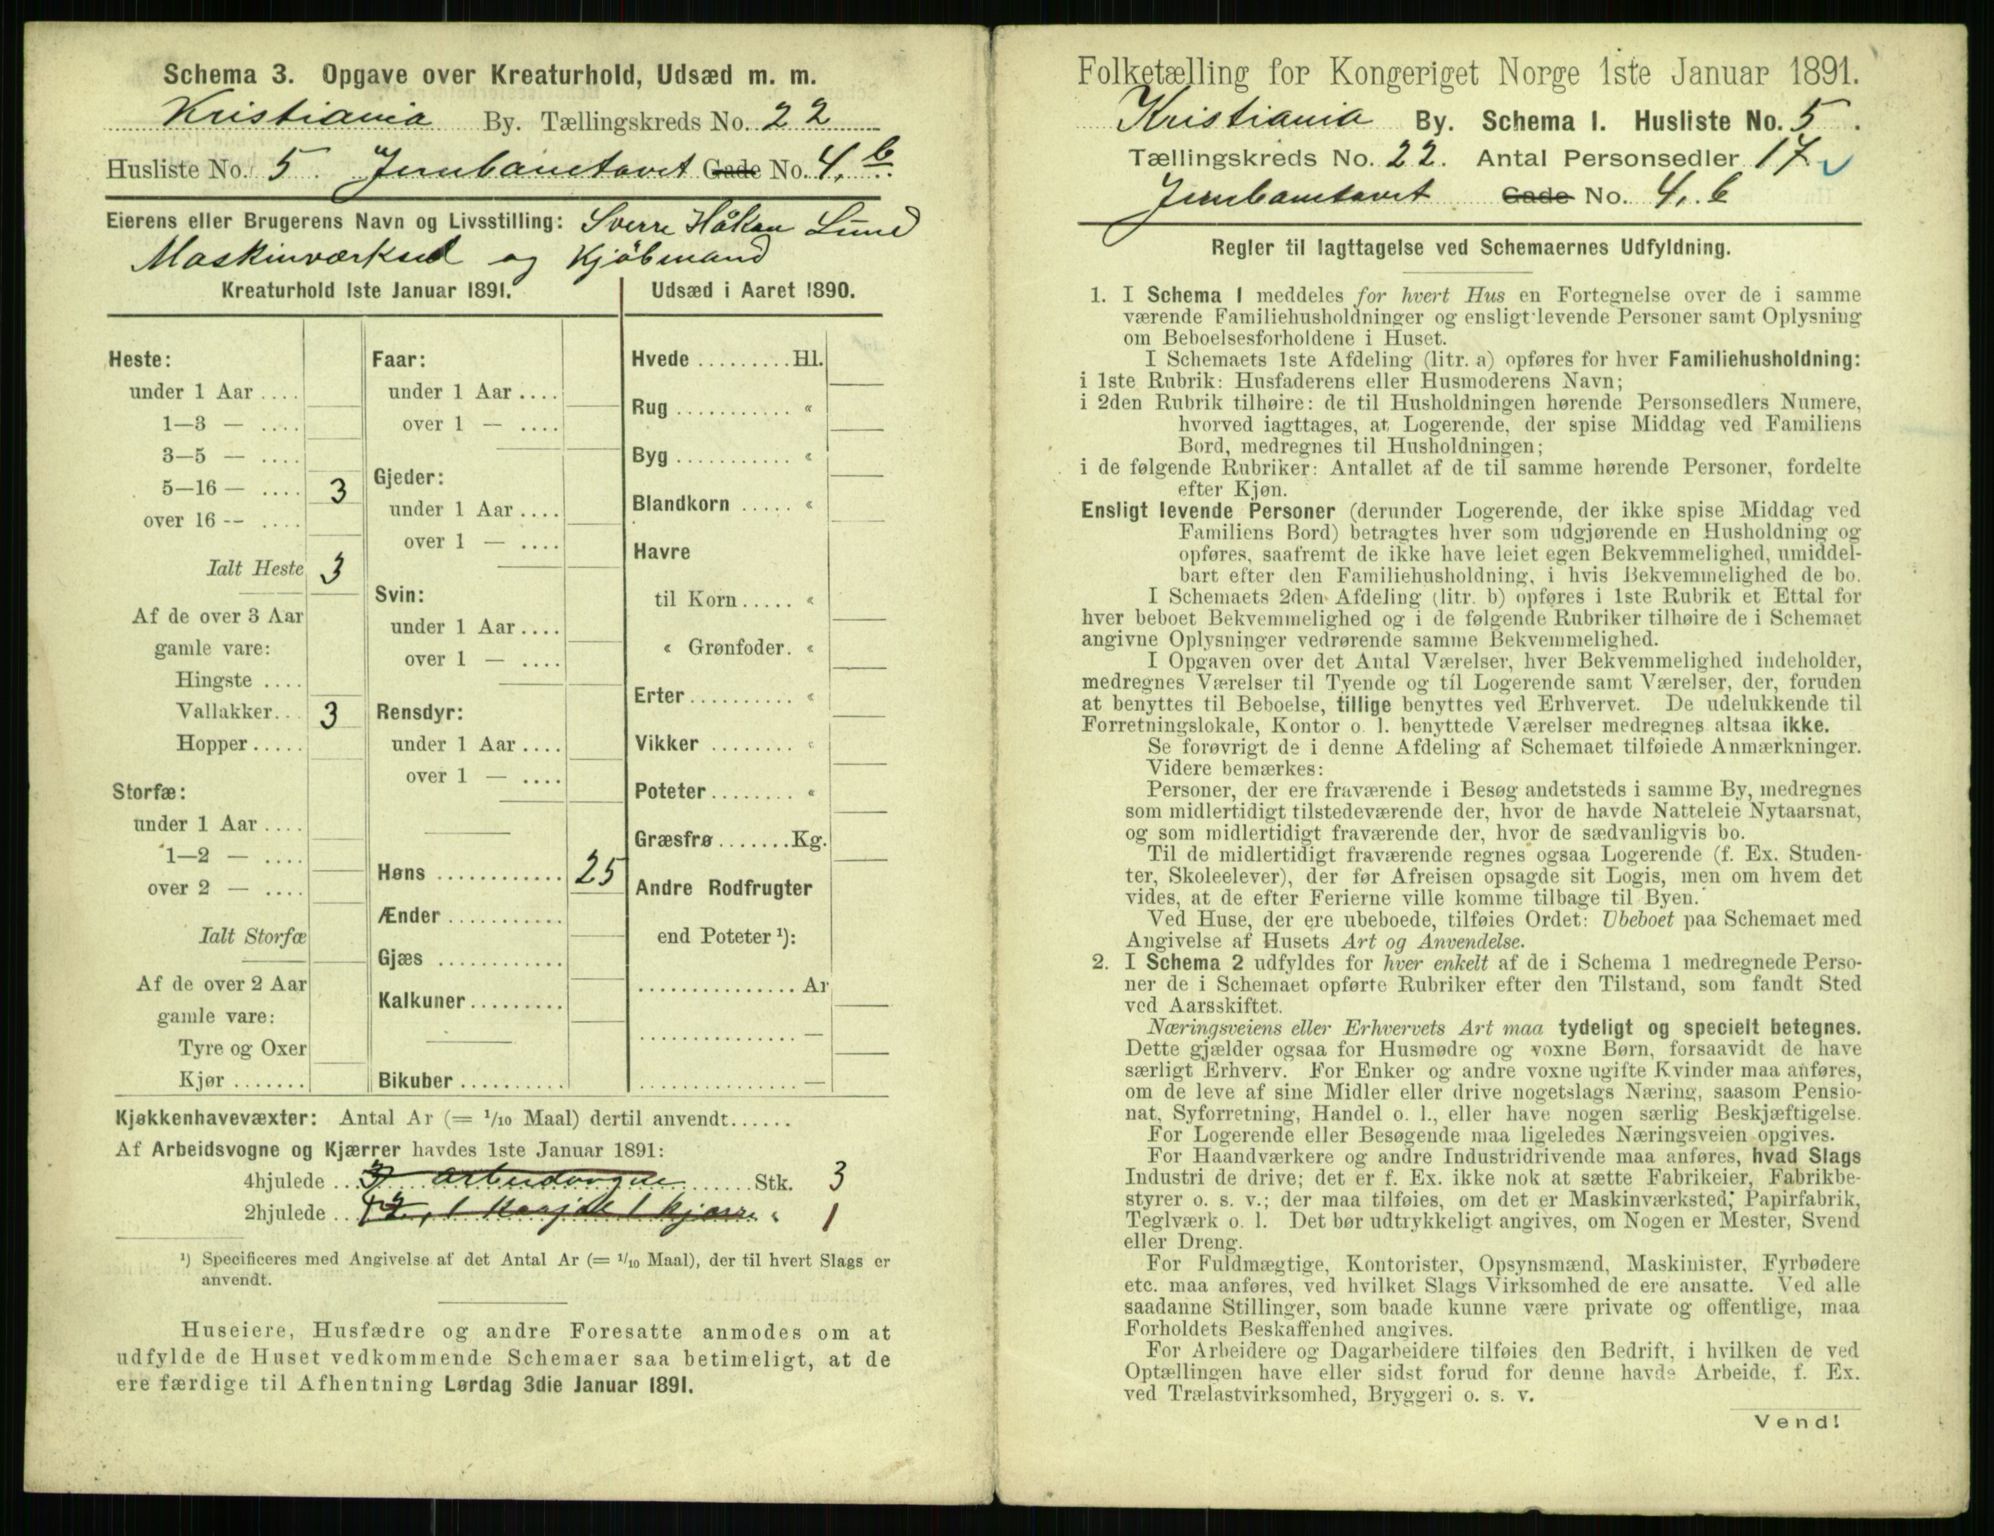 Schema 3. Opgave over Kreaturhold, Udsæd m. m.
Kristiania By. Tællingskreds No. 22
Husliste No. 5. Jernbanetorvet Gade No. 4. b.
Eierens eller Brugerens Navn og Livsstilling: Sverre Håkon Lund
Maskinværksted og Kjøbmand
Kreaturhold 1ste Januar 1891.
Heste:
under 1 Aar ....
1—3 — ....
3—5 — ....
5—16 — .... 3
over 16 -- ....
Ialt Heste 3
Af de over 3 Aar
gamle vare:
Hingste ....
Vallakker.. 3
Hopper.....
Storfæ:
under 1 Aar ....
1—2 — ....
over 2 — ....
Ialt Storfæ
Af de over 2 Aar
gamle vare:
Tyre og Oxer
Kjør .......
Faar:
under 1 Aar ....
over 1 — ....
Gjeder:
under 1 Aar ....
over 1 — ....
Svin:
under 1 Aar ....
over 1 — ....
Rensdyr:
under 1 Aar ....
over 1 — ....
Høns ............ 25
Ænder ...........
Gjæs ............
Kalkuner.........
Bikuber ..........
Udsæd i Aaret 1890.
Hvede ......... Hl.
Rug ........... «
Byg ........... «
Blandkorn ..... «
Havre
til Korn..... «
« Grønfoder. «
Erter.......... «
Vikker ........ «
Poteter........ «
Græsfrø.......Kg.
Andre Rodfrugter
end Poteter ¹):
............... Ar
............... —
............... —
Kjøkkenhavevæxter: Antal Ar (= 1/10 Maal) dertil anvendt......
Af Arbeidsvogne og Kjærrer havdes 1ste Januar 1891:
4hjulede .. 3 Arbeidsvogne ...... Stk. 3
2hjulede .. 1 Kjærre « 1
¹) Specificeres med Angivelse af det Antal Ar (= 1/10 Maal), der til hvert Slags er
anvendt.
Huseiere, Husfædre og andre Foresatte anmodes om at
udfylde de Huset vedkommende Schemaer saa betimeligt, at de
ere færdige til Afhentning Lørdag 3die Januar 1891.
Folketælling for Kongeriget Norge 1ste Januar 1891.
Kristiania By. Schema I. Husliste No. 5.
Tællingskreds No. 22. Antal Personsedler 17.
Jernbanetorvet Gade No. 4. b
Regler til Iagttagelse ved Schemaernes Udfyldning.
1. I Schema I meddeles for hvert Hus en Fortegnelse over de i samme
værende Familiehusholdninger og ensligt levende Personer samt Oplysning
om Beboelsesforholdene i Huset.
I Schemaets 1ste Afdeling (litr. a) opføres for hver Familiehusholdning:
i 1ste Rubrik: Husfaderens eller Husmoderens Navn;
i 2den Rubrik tilhøire: de til Husholdningen hørende Personsedlers Numere,
hvorved iagttages, at Logerende, der spise Middag ved Familiens
Bord, medregnes til Husholdningen;
i de følgende Rubriker: Antallet af de til samme hørende Personer, fordelte
efter Kjøn.
Ensligt levende Personer (derunder Logerende, der ikke spise Middag ved
Familiens Bord) betragtes hver som udgjørende en Husholdning og
opføres, saafremt de ikke have leiet egen Bekvemmelighed, umiddel-
bart efter den Familiehusholdning, i hvis Bekvemmelighed de bo.
I Schemaets 2den Afdeling (litr. b) opføres i 1ste Rubrik et Ettal for
hver beboet Bekvemmelighed og i de følgende Rubriker tilhøire de i Schemaet
angivne Oplysninger vedrørende samme Bekvemmelighed.
I Opgaven over det Antal Værelser, hver Bekvemmelighed indeholder,
medregnes Værelser til Tyende og til Logerende samt Værelser, der, foruden
at benyttes til Beboelse, tillige benyttes ved Erhvervet. De udelukkende til
Forretningslokale, Kontor o. l. benyttede Værelser medregnes altsaa ikke.
Se forøvrigt de i denne Afdeling af Schemaet tilføiede Anmærkninger.
Videre bemærkes:
Personer, der ere fraværende i Besøg andetsteds i samme By, medregnes
som midlertidigt tilstedeværende der, hvor de havde Natteleie Nytaarsnat,
og som midlertidigt fraværende der, hvor de sædvanligvis bo.
Til de midlertidigt fraværende regnes ogsaa Logerende (f. Ex. Studen-
ter, Skoleelever), der før Afreisen opsagde sit Logis, men om hvem det
vides, at de efter Ferierne ville komme tilbage til Byen.
Ved Huse, der ere ubeboede, tilføies Ordet: Ubeboet paa Schemaet med
Angivelse af Husets Art og Anvendelse.
2. I Schema 2 udfyldes for hver enkelt af de i Schema 1 medregnede Perso-
ner de i Schemaet opførte Rubriker efter den Tilstand, som fandt Sted
ved Aarsskiftet.
Næringsveiens eller Erhvervets Art maa tydeligt og specielt betegnes.
Dette gjælder ogsaa for Husmødre og voxne Børn, forsaavidt de have
særligt Erhverv. For Enker og andre voxne ugifte Kvinder maa anføres,
om de leve af sine Midler eller drive nogetslags Næring, saasom Pensio-
nat, Syforretning, Handel o. l., eller have nogen særlig Beskjæftigelse.
For Logerende eller Besøgende maa ligeledes Næringsveien opgives.
For Haandværkere og andre Industridrivende maa anføres, hvad Slags
Industri de drive; det er f. Ex. ikke nok at sætte Fabrikeier, Fabrikbe-
styrer o. s. v.; der maa tilføies, om det er Maskinværksted, Papirfabrik,
Teglværk o. l. Det bør udtrykkeligt angives, om Nogen er Mester, Svend
eller Dreng.
For Fuldmægtige, Kontorister, Opsynsmænd, Maskinister, Fyrbødere
etc. maa anføres, ved hvilket Slags Virksomhed de ere ansatte. Ved alle
saadanne Stillinger, som baade kunne være private og offentlige, maa
Forholdets Beskaffenhed angives.
For Arbeidere og Dagarbeidere tilføies den Bedrift, i hvilken de ved
Optællingen have eller sidst forud for denne havde Arbeide, f. Ex.
ved Trælastvirksomhed, Bryggeri o. s. v.
Vend!